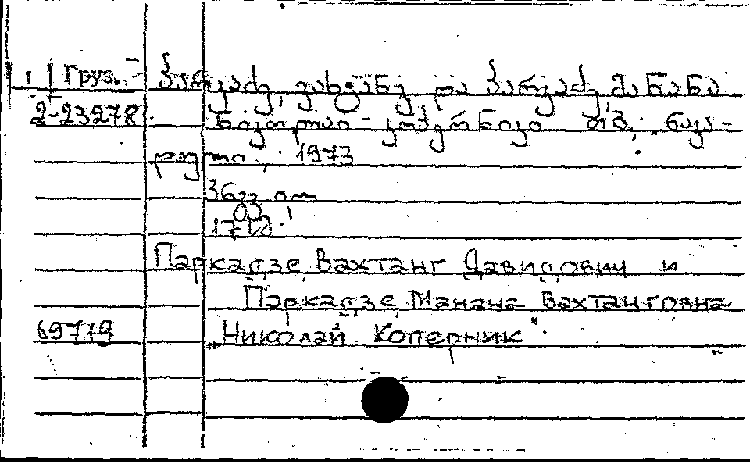 1 Груз. პარკაძე, ვახტანგ და პარკაძე, მანანა
2-23278 ნიკოლაი კოპერნიკი თბ., ნაკა-
დული, 1973
36 გვ.
Паркадзе, Вахтанг Давидович и
Паркадзе, Манана Вахтанговна
69779 "Николай Коперник"